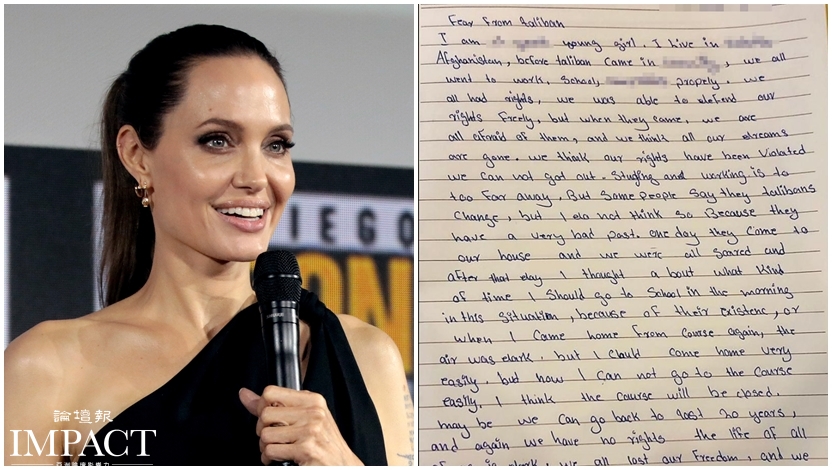 IEGO
論壇報
IMPACT
Fear from Taliban
I am young girl. I live in
Afghanistan, before taliban came in , we all
went to work, school, propely. we
all had rights, we was able to defend our
rights freely, but when they came, we are
all afraid of them, and we think all our dreams
are gone. we think our rights have been violated
we can not got out. Studing and working is to
too far away, But some people say they talibans
change, but I do not think so Because they
have a very bad past. one day they come to
our house and we were all scared and
after that day I thought a bout what kind
of time I should go to School in the morning
in this situation, because of their existenc, or
when I came home from course again, the
air was dark. but I Could come home very
easily, but now I can not go to the course
easily. I think the course will be closed.
may be we can go back to last 20 years,
and again we have no rights the life of all
is dark, we all lost our Freedom, and we